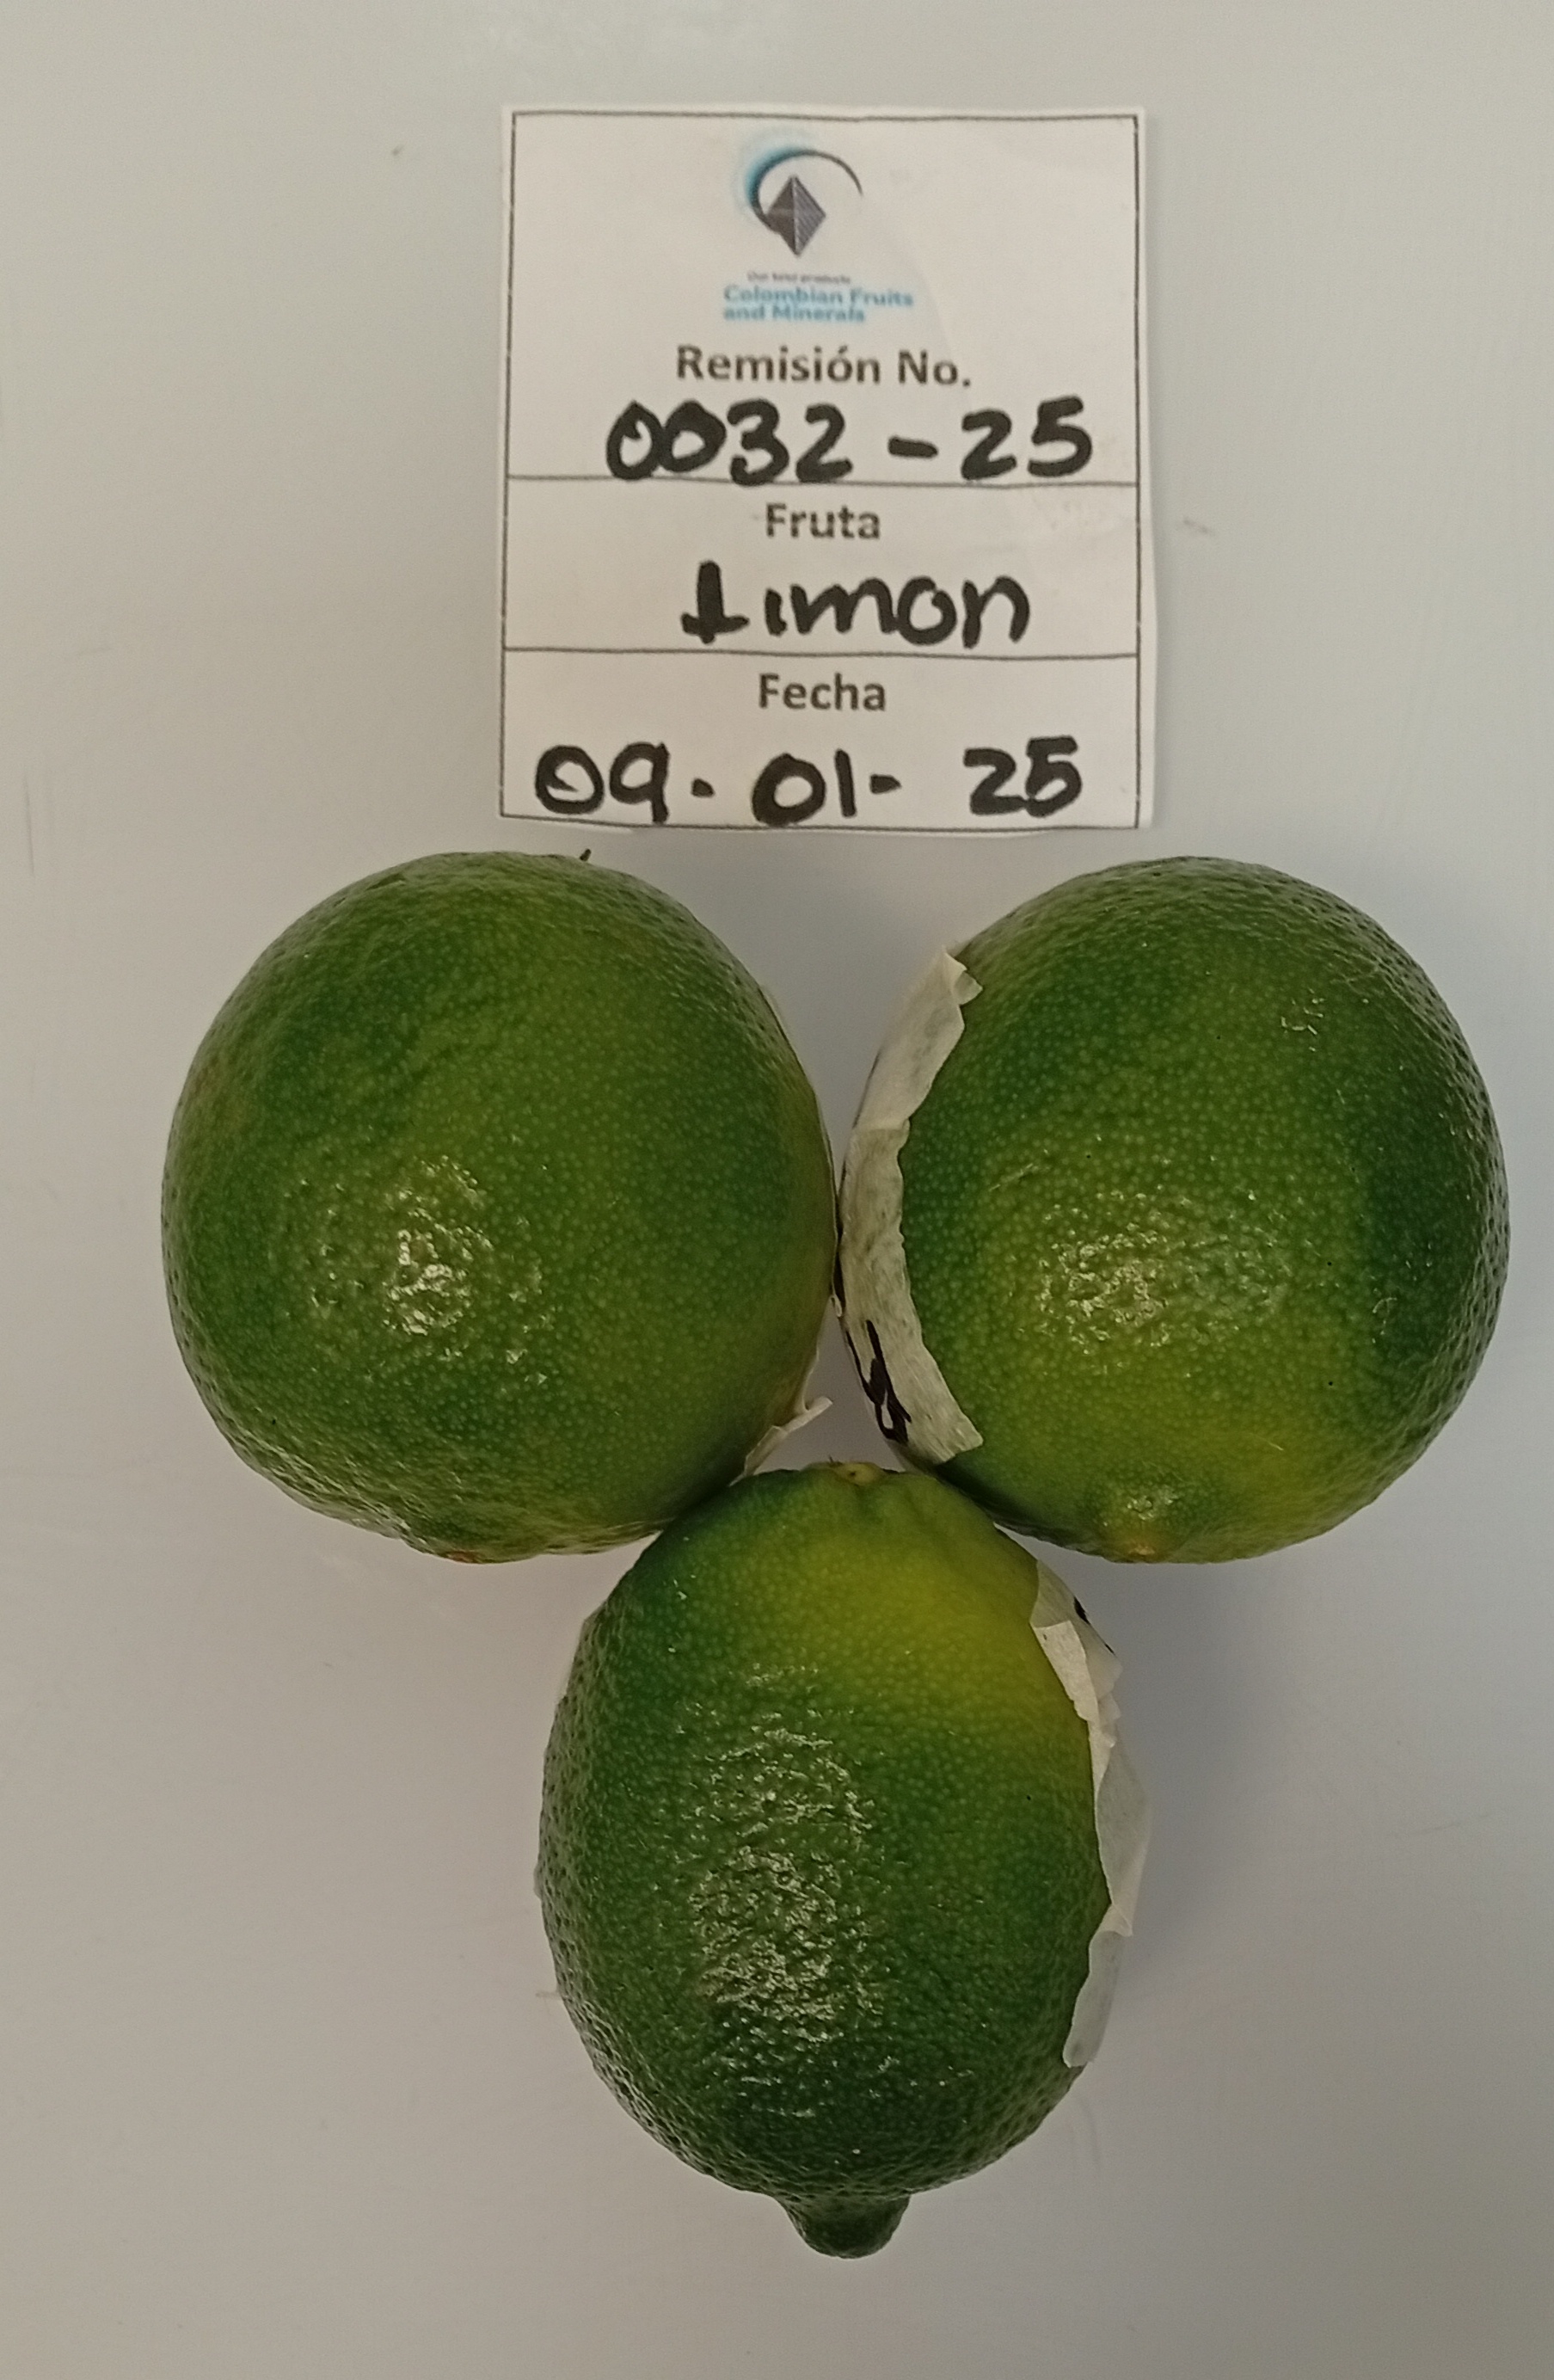 Our best products
Colombian Fruits
and Minerals
Remisión No.
0032-25
Fruta
Limon
Fecha
09-01-25